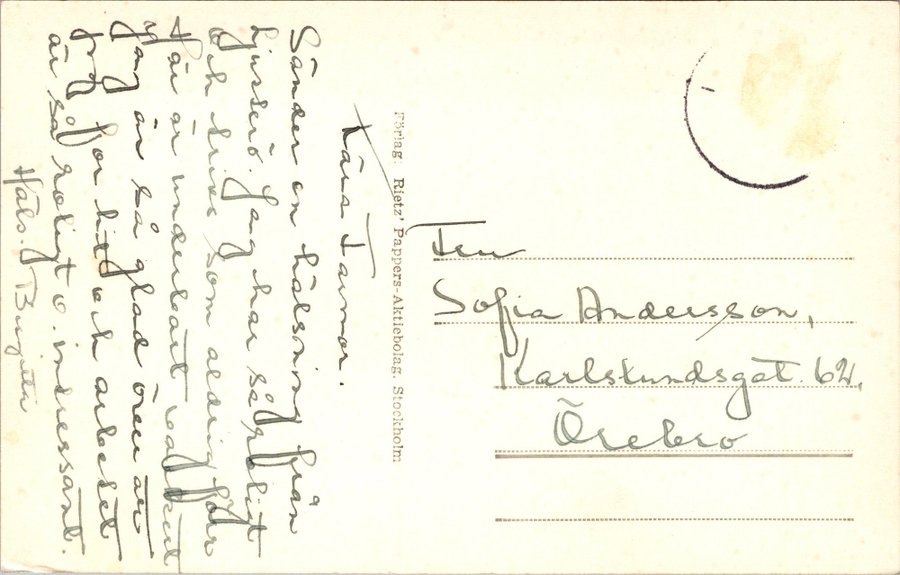 Kära Farmor.
Sänder en hälsning från
Ljusterö. Jag har så roligt
och trives som aldrig förr
Här är underbart vackert
jag är så glad över att
jag for hit och arbetet
är så roligt o. intressant.
Häls. Birgitta
Förlag: Rietz' Pappers-Aktiebolag, Stockholm
Fru
Sofia Andersson,
Karlslundsgat. 62,
Örebro